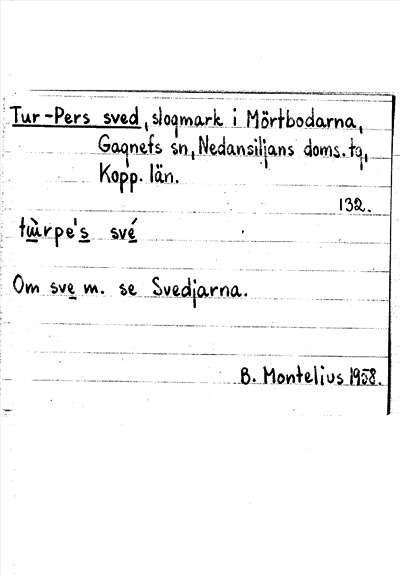 Tur-Pers sved, slogmark i Mörtbodarna,
Gagnefs sn, Nedansiljans doms. tg,
Kopp. län.
132.
tùrpe's své
Om sve m. se Svedjarna.
B. Montelius 1958.